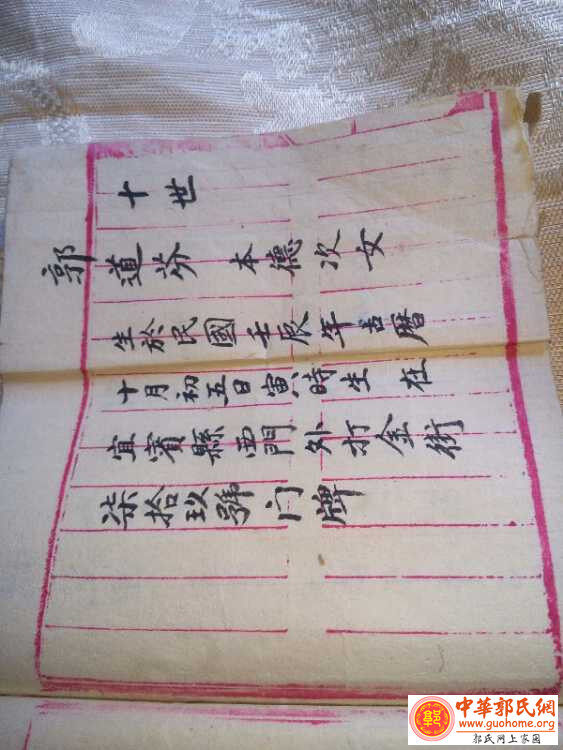 十世
郭道芬 本德次女
生於民國壬辰年古曆
十月初五日寅時生在
宜賓縣西門外打金街
柒拾玖號门牌
中華郭氏網
www.guohome.org
郭氏网上家园